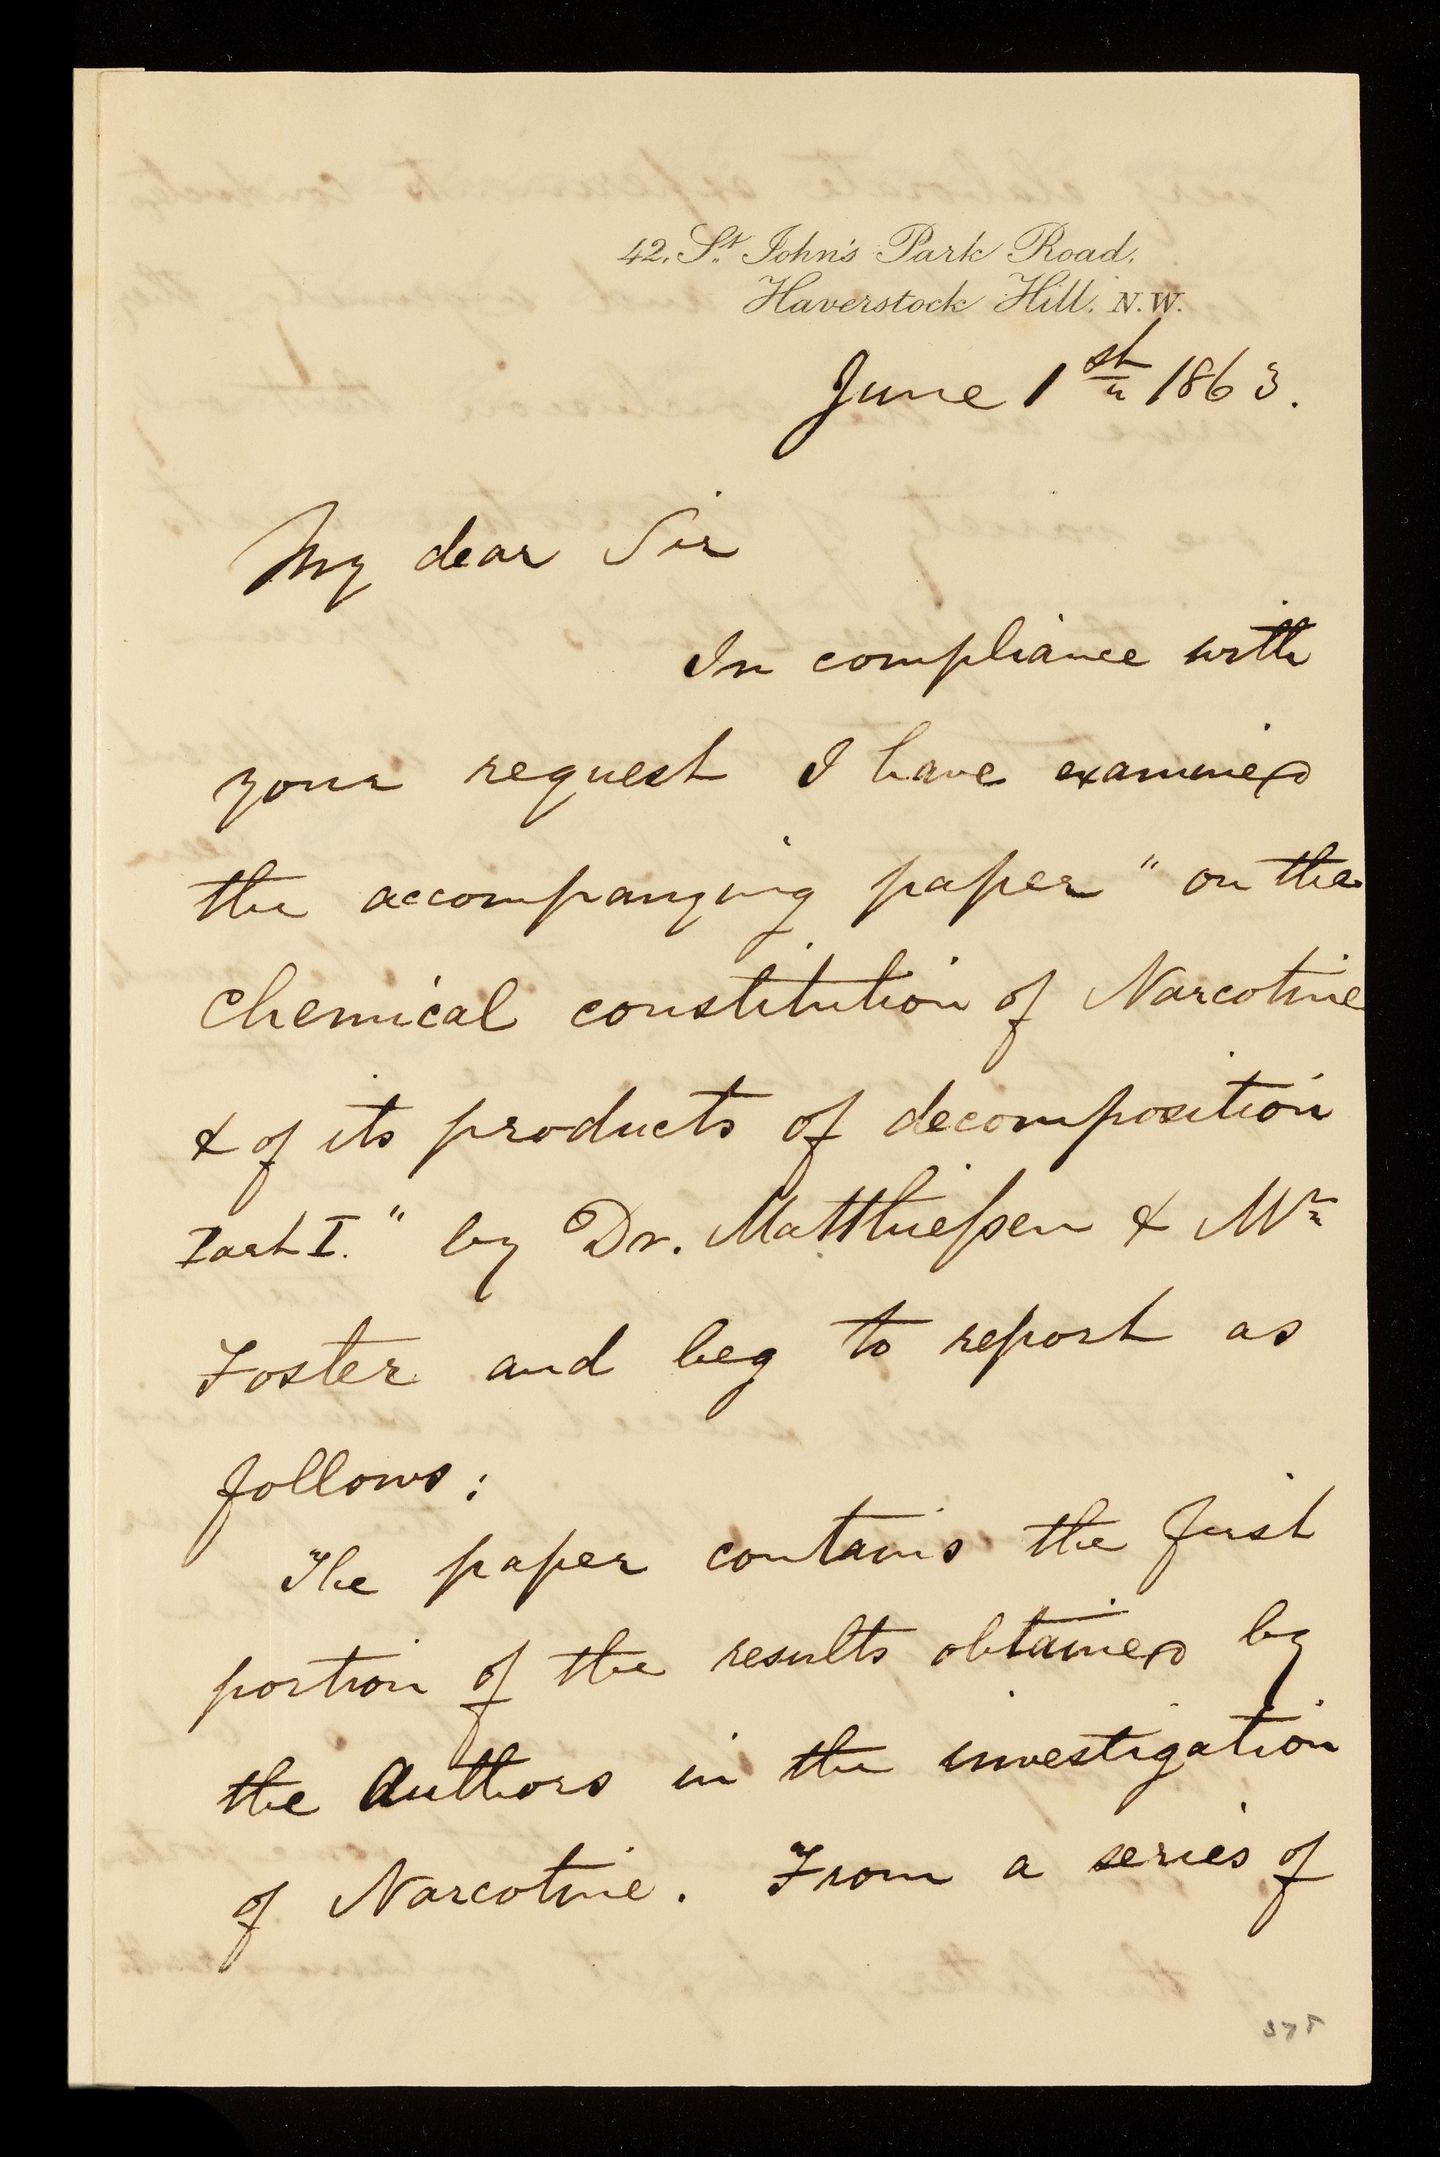 42, St. John's Park Road,
Haverstock Hill. N.W.
June 1st 1863.
My dear Sir
In compliance with
your request I have examined
the accompanying paper "on the
Chemical constitution of Narcotine
& of its products of decomposition
Part I." by Dr. Matthiessen & Mr
Foster and beg to report as
follows:
The paper contains the first
portion of the results obtained by
the Authors in the investigation
of Narcotine. From a series of